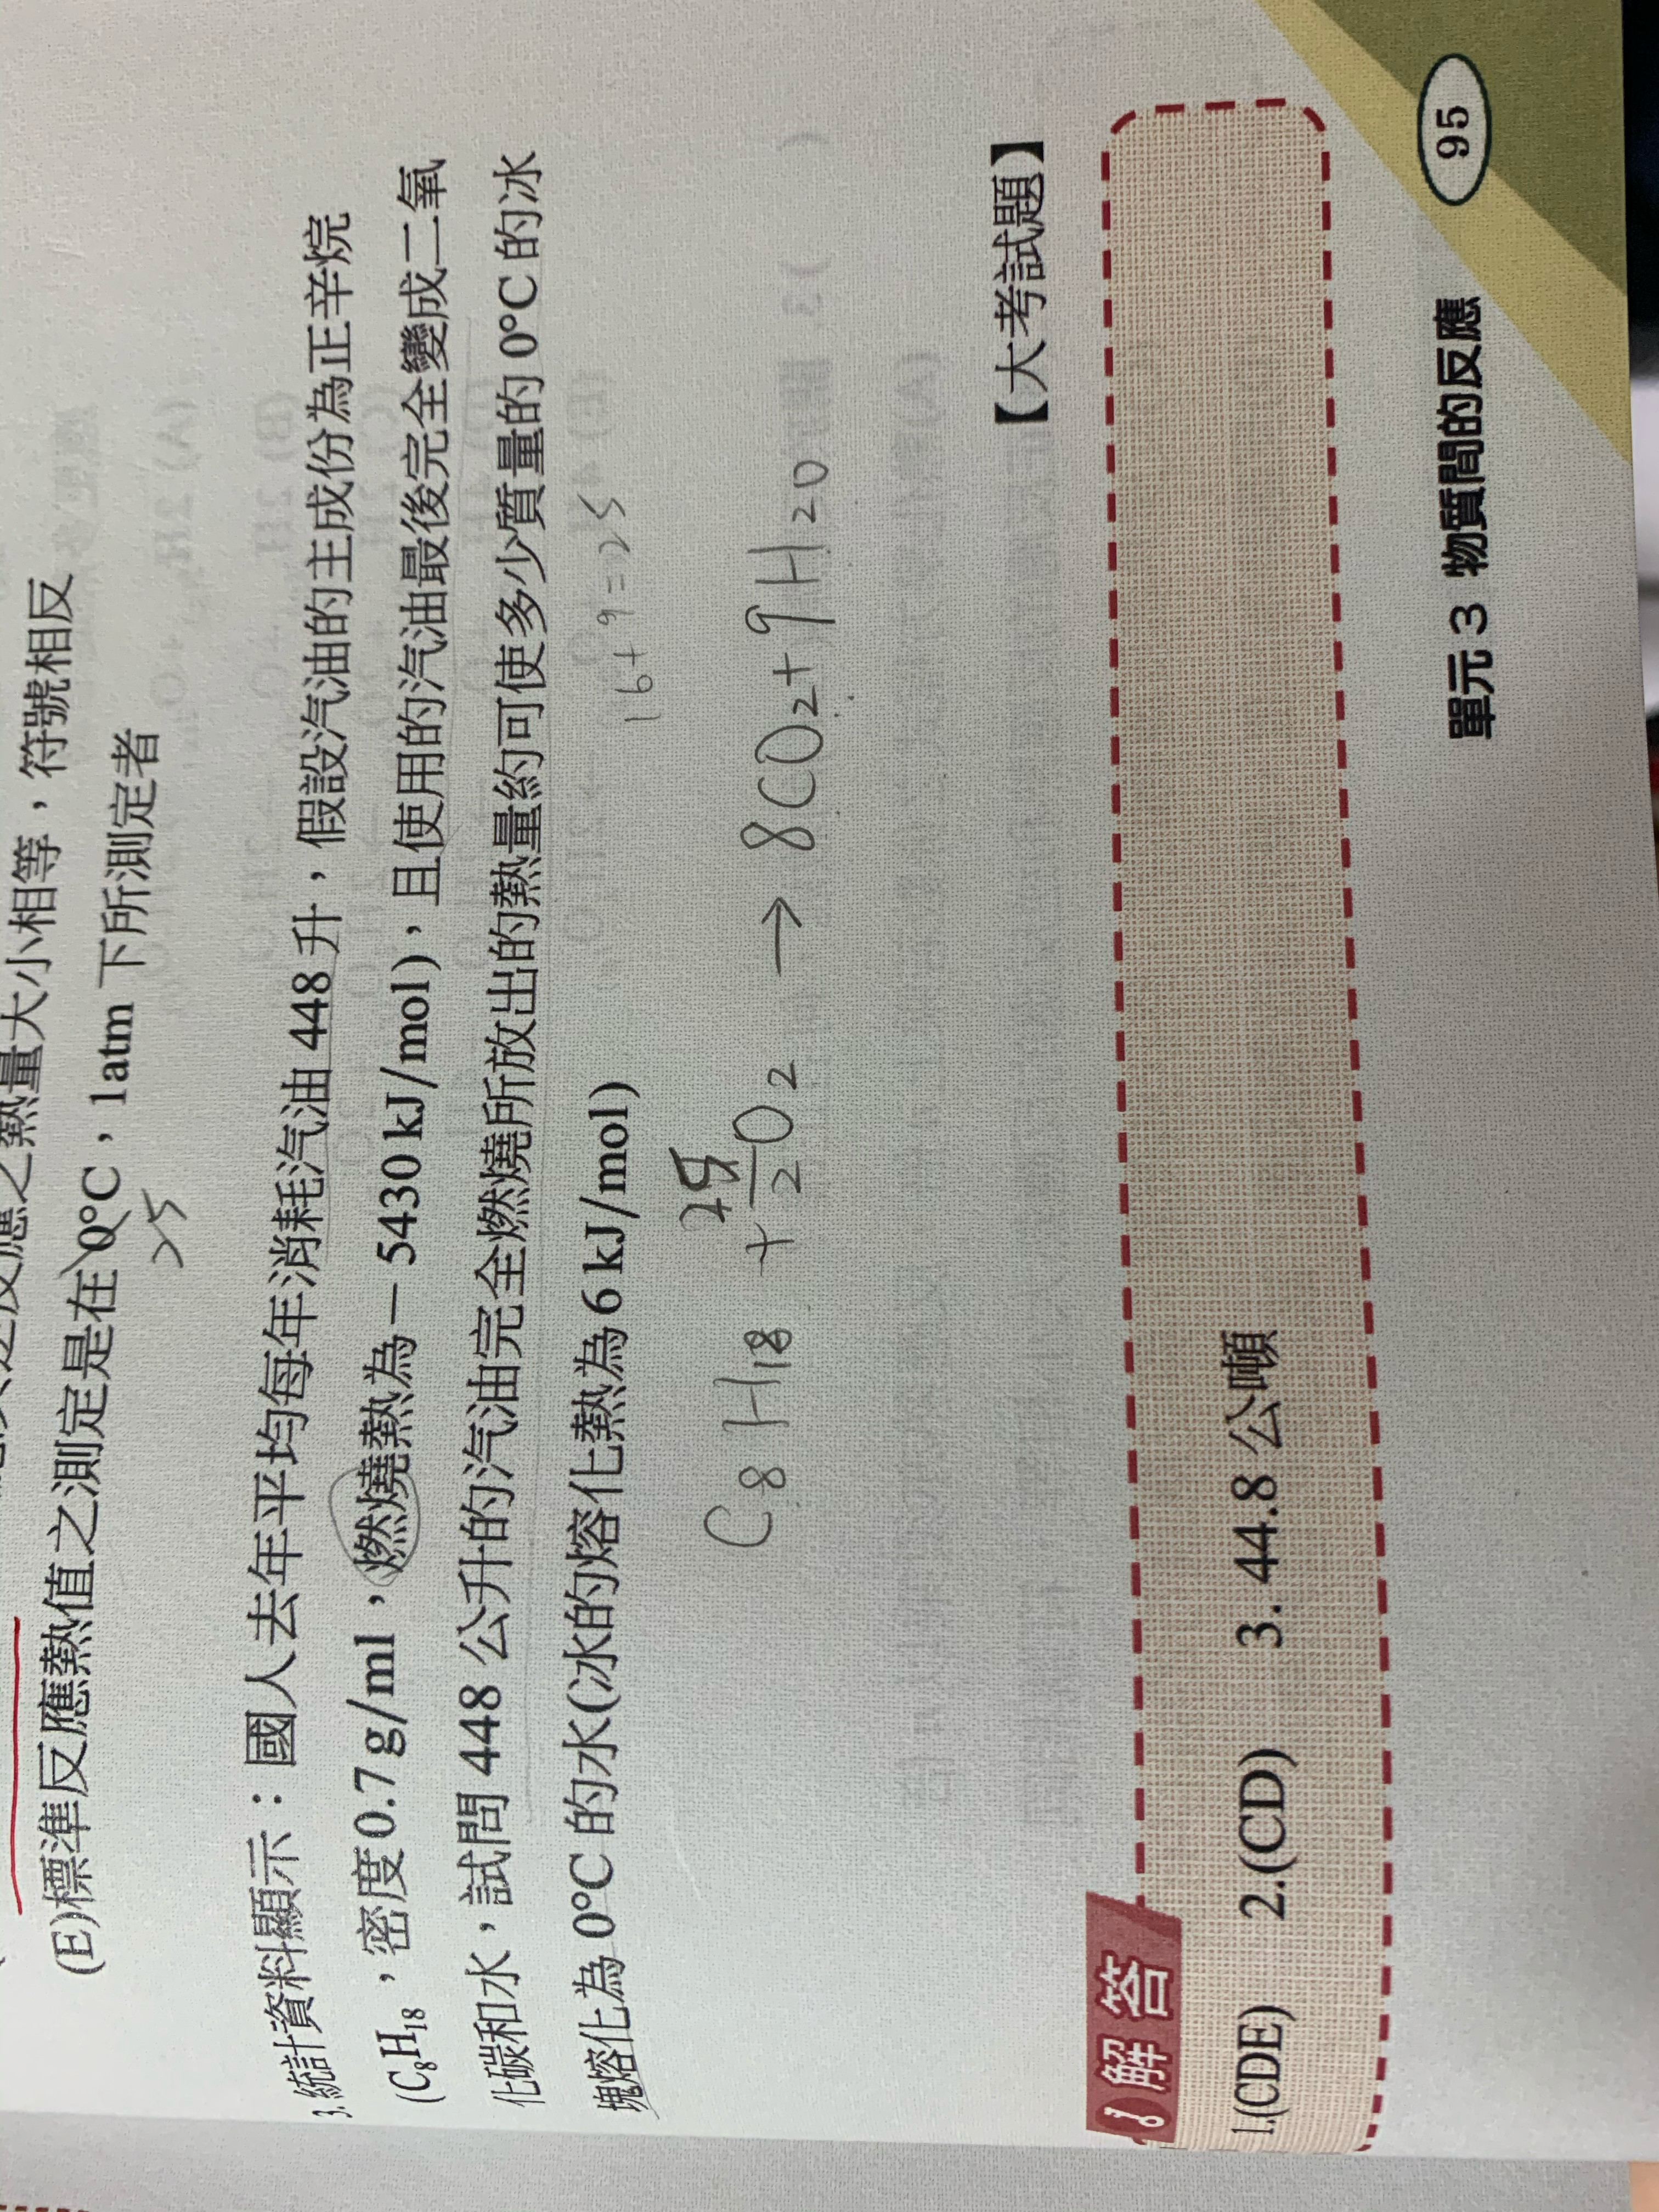 熱量大小相等，符號相反
(E)標準反應熱值之測定是在 0°C，1atm 下所測定者
25
3.統計資料顯示：國人去年平均每年消耗汽油 448 升，假設汽油的主成份為正辛烷
(C₈H₁₈，密度 0.7 g/ml，燃燒熱為－5430 kJ/mol)，且使用的汽油最後完全變成二氧
化碳和水，試問 448 公升的汽油完全燃燒所放出的熱量約可使多少質量的 0°C 的冰
塊熔化為 0°C 的水(冰的熔化熱為 6 kJ/mol)
16+9=25
C₈H₁₈ + 25/2 O₂ → 8CO₂+9H₂O
【大考試題】
解答
1.(CDE) 2.(CD) 3. 44.8 公噸
單元 3 物質間的反應 95